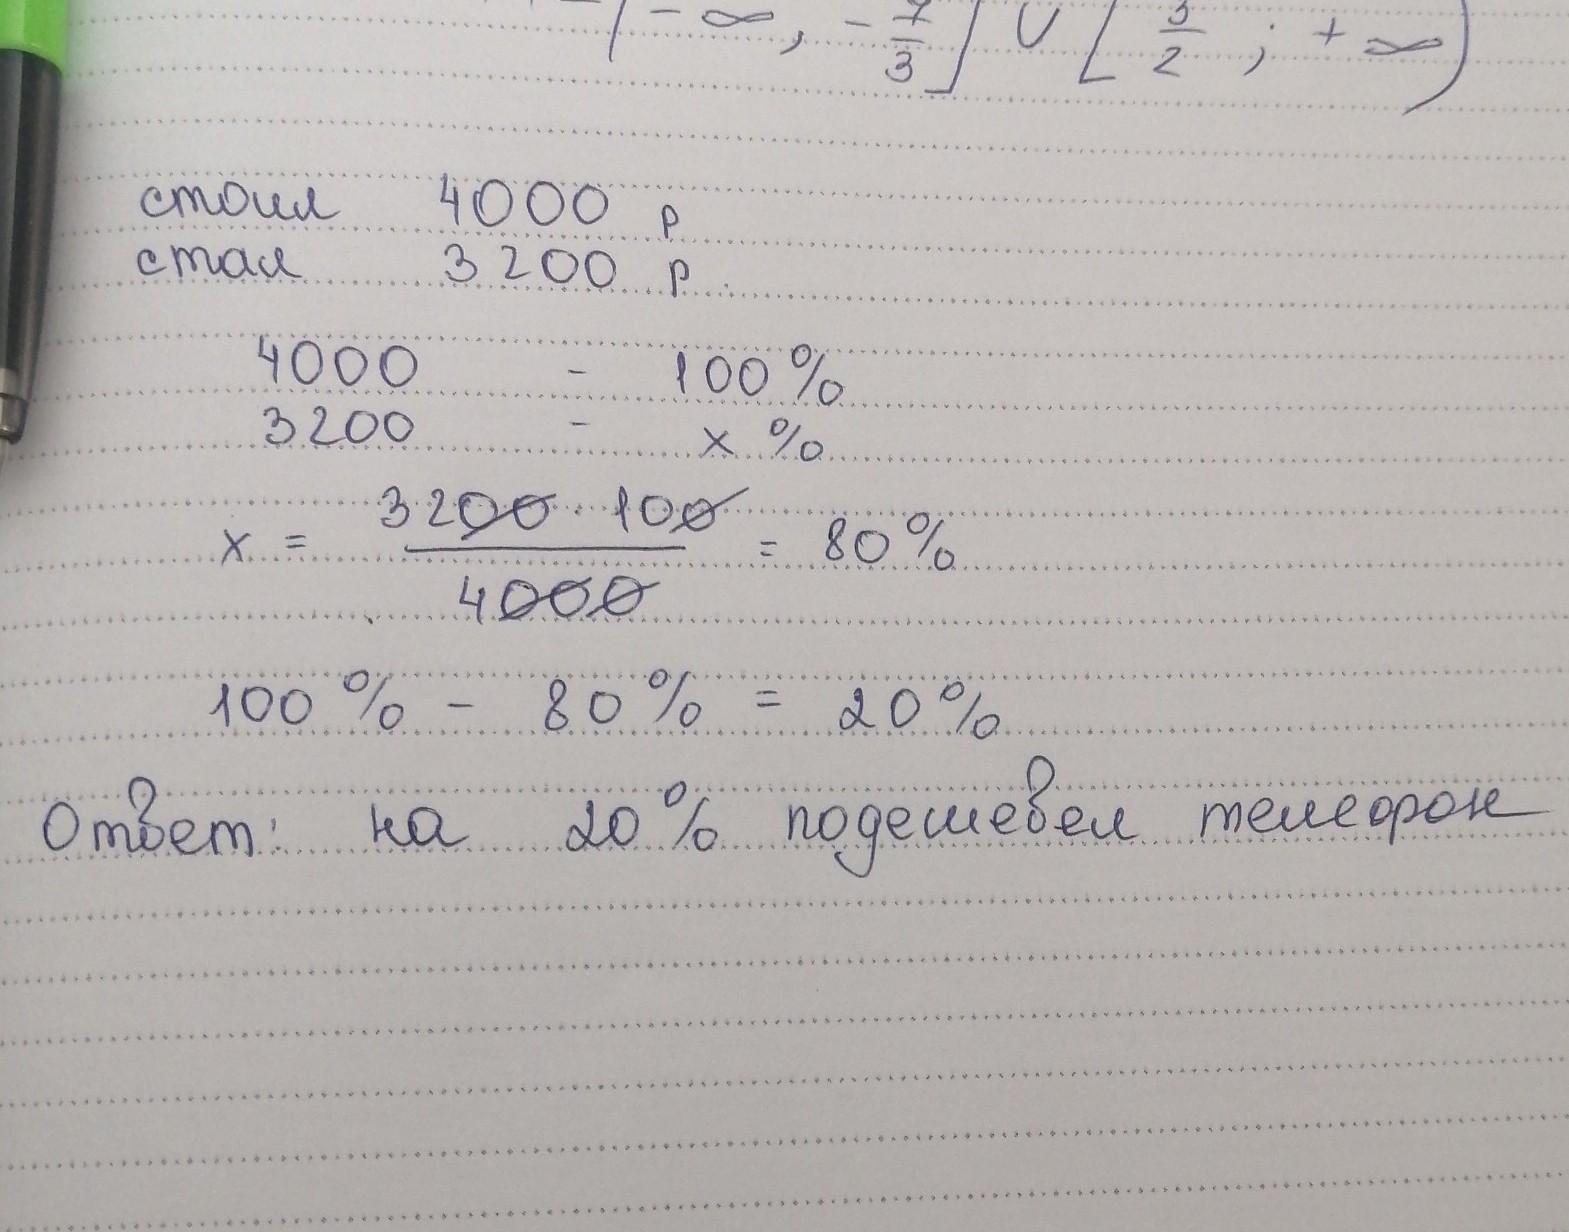 (-∞, -7/3] ∪ [3/2 ; +∞)
стоил 4000 р
стал 3200 р.
4000 - 100%
3200 - x %
x = 3200 · 100 / 4000 = 80%
100% - 80% = 20%
Ответ: на 20% подешевел телефон